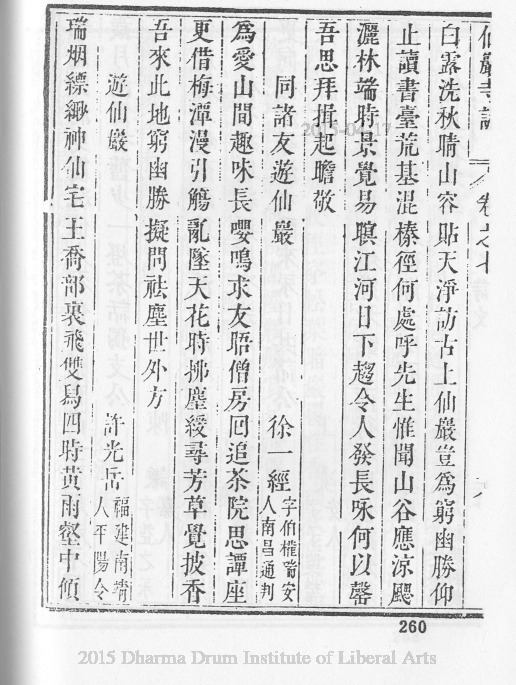 仙巖寺誌 卷之七
白露洗秋晴山容貼天淨訪古上仙巖豈為窮幽勝仰
止讀書臺荒基混榛徑何處呼先生惟聞山谷應涼飃
灑林端時景覺易暝江河日下趨令人發長咏何以罄
吾思拜揖起瞻敬
同諸友遊仙巖 徐一經 字伯權瑞安人南昌通判
為愛山間趣味長嚶鳴求友晤僧房回追茶院思譚座
更借梅潭漫引觴亂墜天花時拂塵緩尋芳草覺披香
吾來此地窮幽勝擬問祛塵世外方
遊仙巖 許光岳 福建南靖人平陽令
瑞烟縹緲神仙宅王喬部裏飛雙舄四時黃雨壑中傾
260
2015 Dharma Drum Institute of Liberal Arts